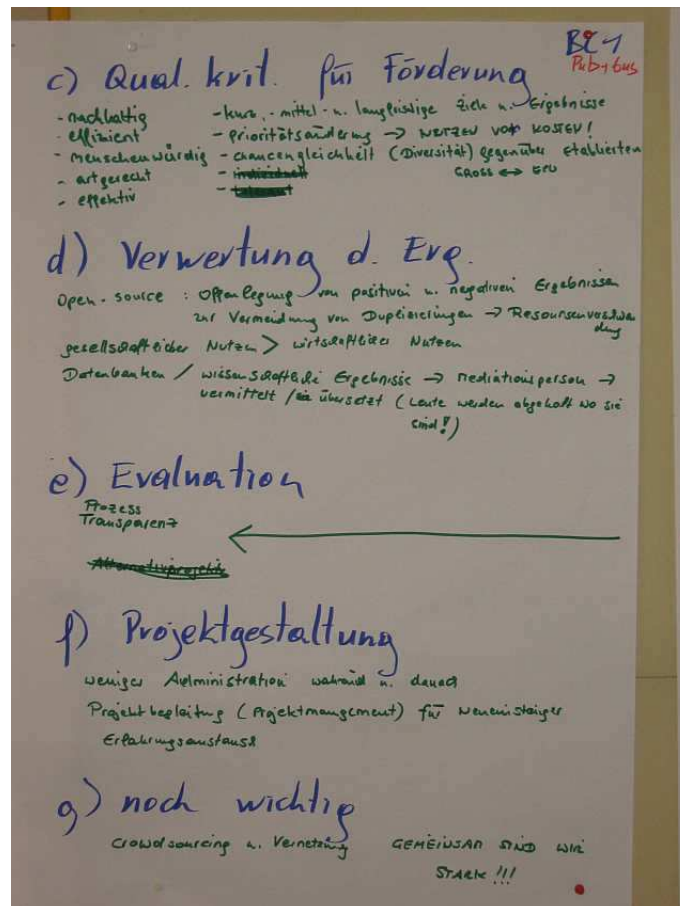 BZ 1
Pub + bus
c) Qual. krit. für Förderung
- nachhaltig
- effizient
- menschenwürdig
- artgerecht
- effektiv
- kurz, - mittel - u. langfristige Ziele u. Ergebnisse
- prioritätsänderung → NUTZEN VOR KOSTEN!
- chancengleichheit (Diversität) gegenüber etablierten
GROSS ↔ EPU
- individuell
- tolerant
d) Verwertung d. Erg.
Open - source : Offenlegung von positiven u. negativen Ergebnissen
zur Vermeidung von Duplizierungen → Resourcenverschwen
dung
gesellschaftlicher Nutzen > wirtschaftlicher Nutzen
Datenbanken / wissenschaftliche Ergebnisse → Mediationsperson →
vermittelt / übersetzt (Leute werden abgeholt wo sie
sind!)
e) Evaluation
Prozess
Transparenz
Alternativprojekte
f) Projektgestaltung
weniger Administration während u. danach
Projektbegleitung (Projektmangement) für Neueinsteiger
Erfahrungsaustausch
g) noch wichtig
Crowdsourcing u. Vernetzung GEMEINSAM SIND WIR
STARK !!!